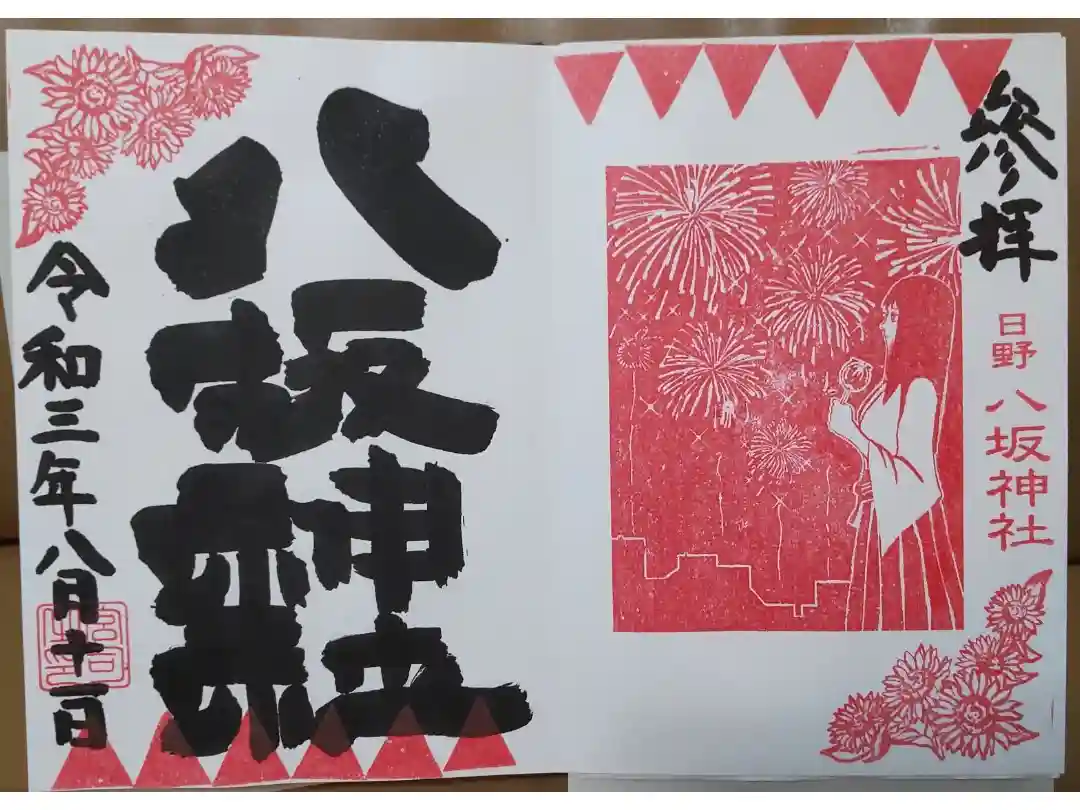 參拝
日野
八坂神社
八坂神社
令和三年八月十一日